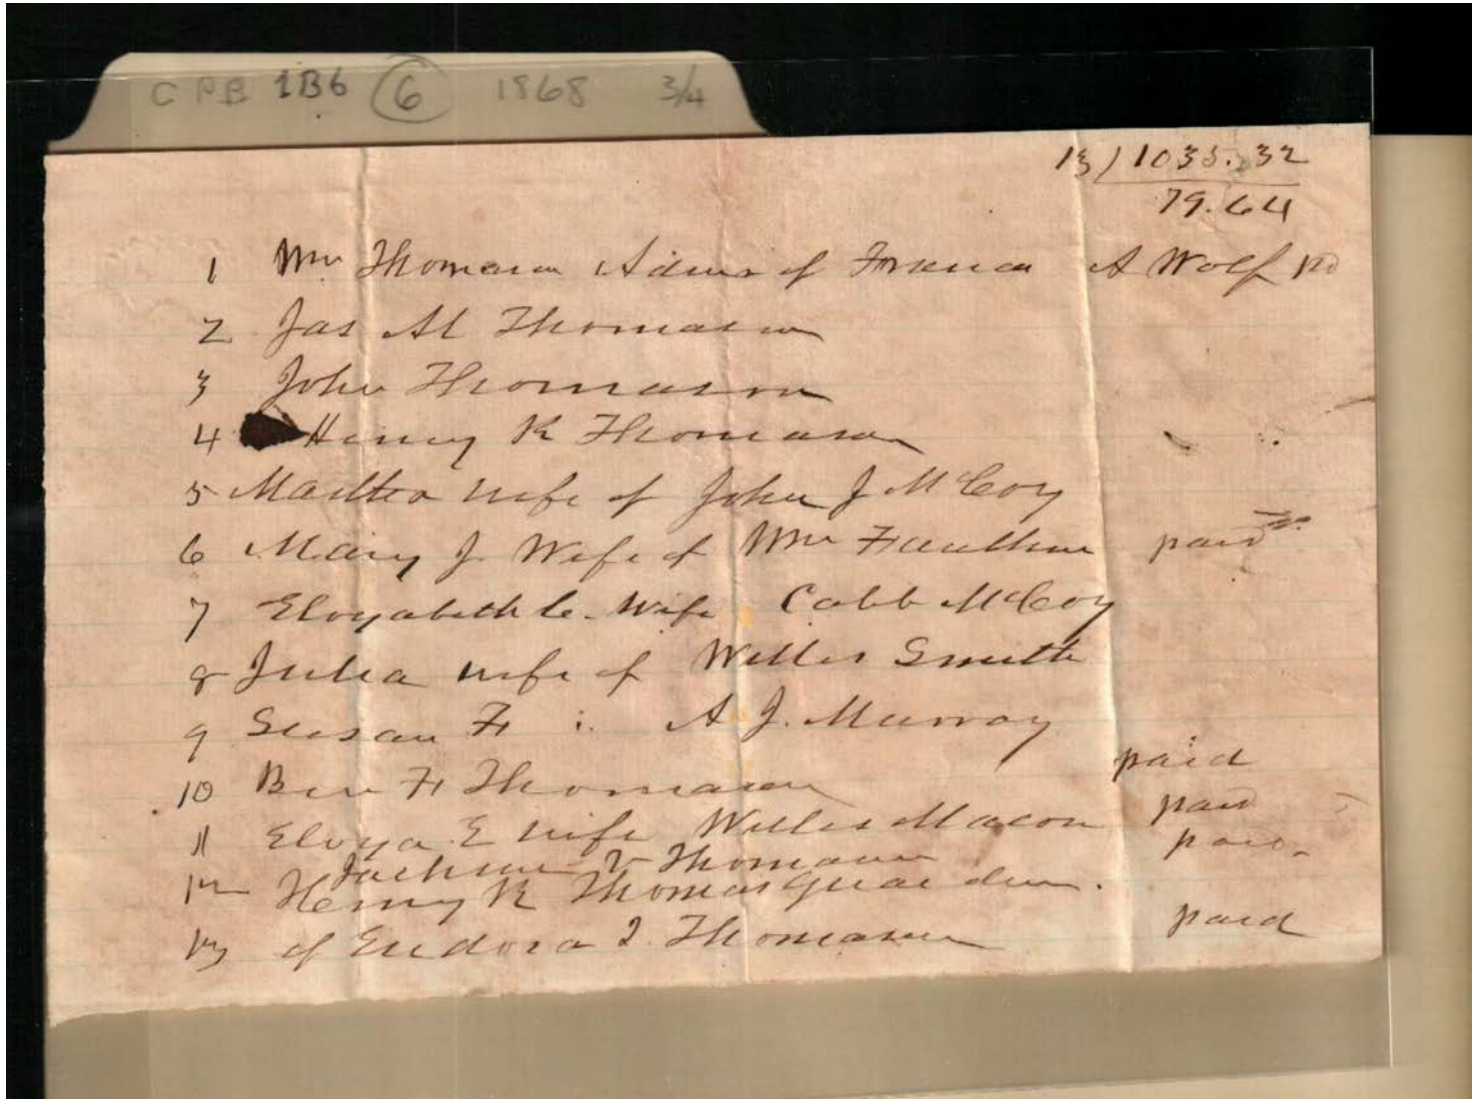 CPB 1B6 6 1868 3/4
13) 1035.32
79.64
1 Wm Thomason Admr of Francis A Wolf pd
2 Jas M Thomason
3 John Thomason
4 Henry K Thomason
5 Martha wife of John J McCoy
6 Mary J. Wife of Wm Faulkner paid
7 Elizabeth C. Wife Cobb McCoy
8 Julia wife of Willis Smith
9 Susan F :. A J. Murray
10 Ben F Thomason paid
11 Eliza E wife Willis Macon paid
12 V Thomason paid
Henry K Thomas guardian.
13 of Eudora I. Thomason paid